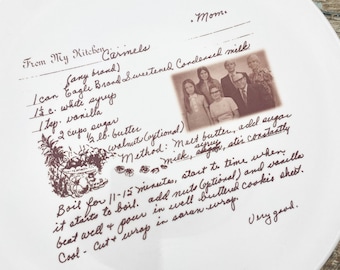 Mom.
From My Kitchen
Carmels
(any brand)
1 can Eagle Brand Sweetened Condensed milk
1½ c. white syrup
1 tsp. vanilla
2 cups sugar
½ lb. butter
walnuts (optional)
Method: Melt butter, add sugar
milk, syrup, stir constantly
Boil for 11-15 minutes, start to time when
it starts to boil. add nuts (optional) and vanilla
beat well & pour in well buttered cookie sheet.
Cool - Cut & wrap in saran wrap.
Very good.